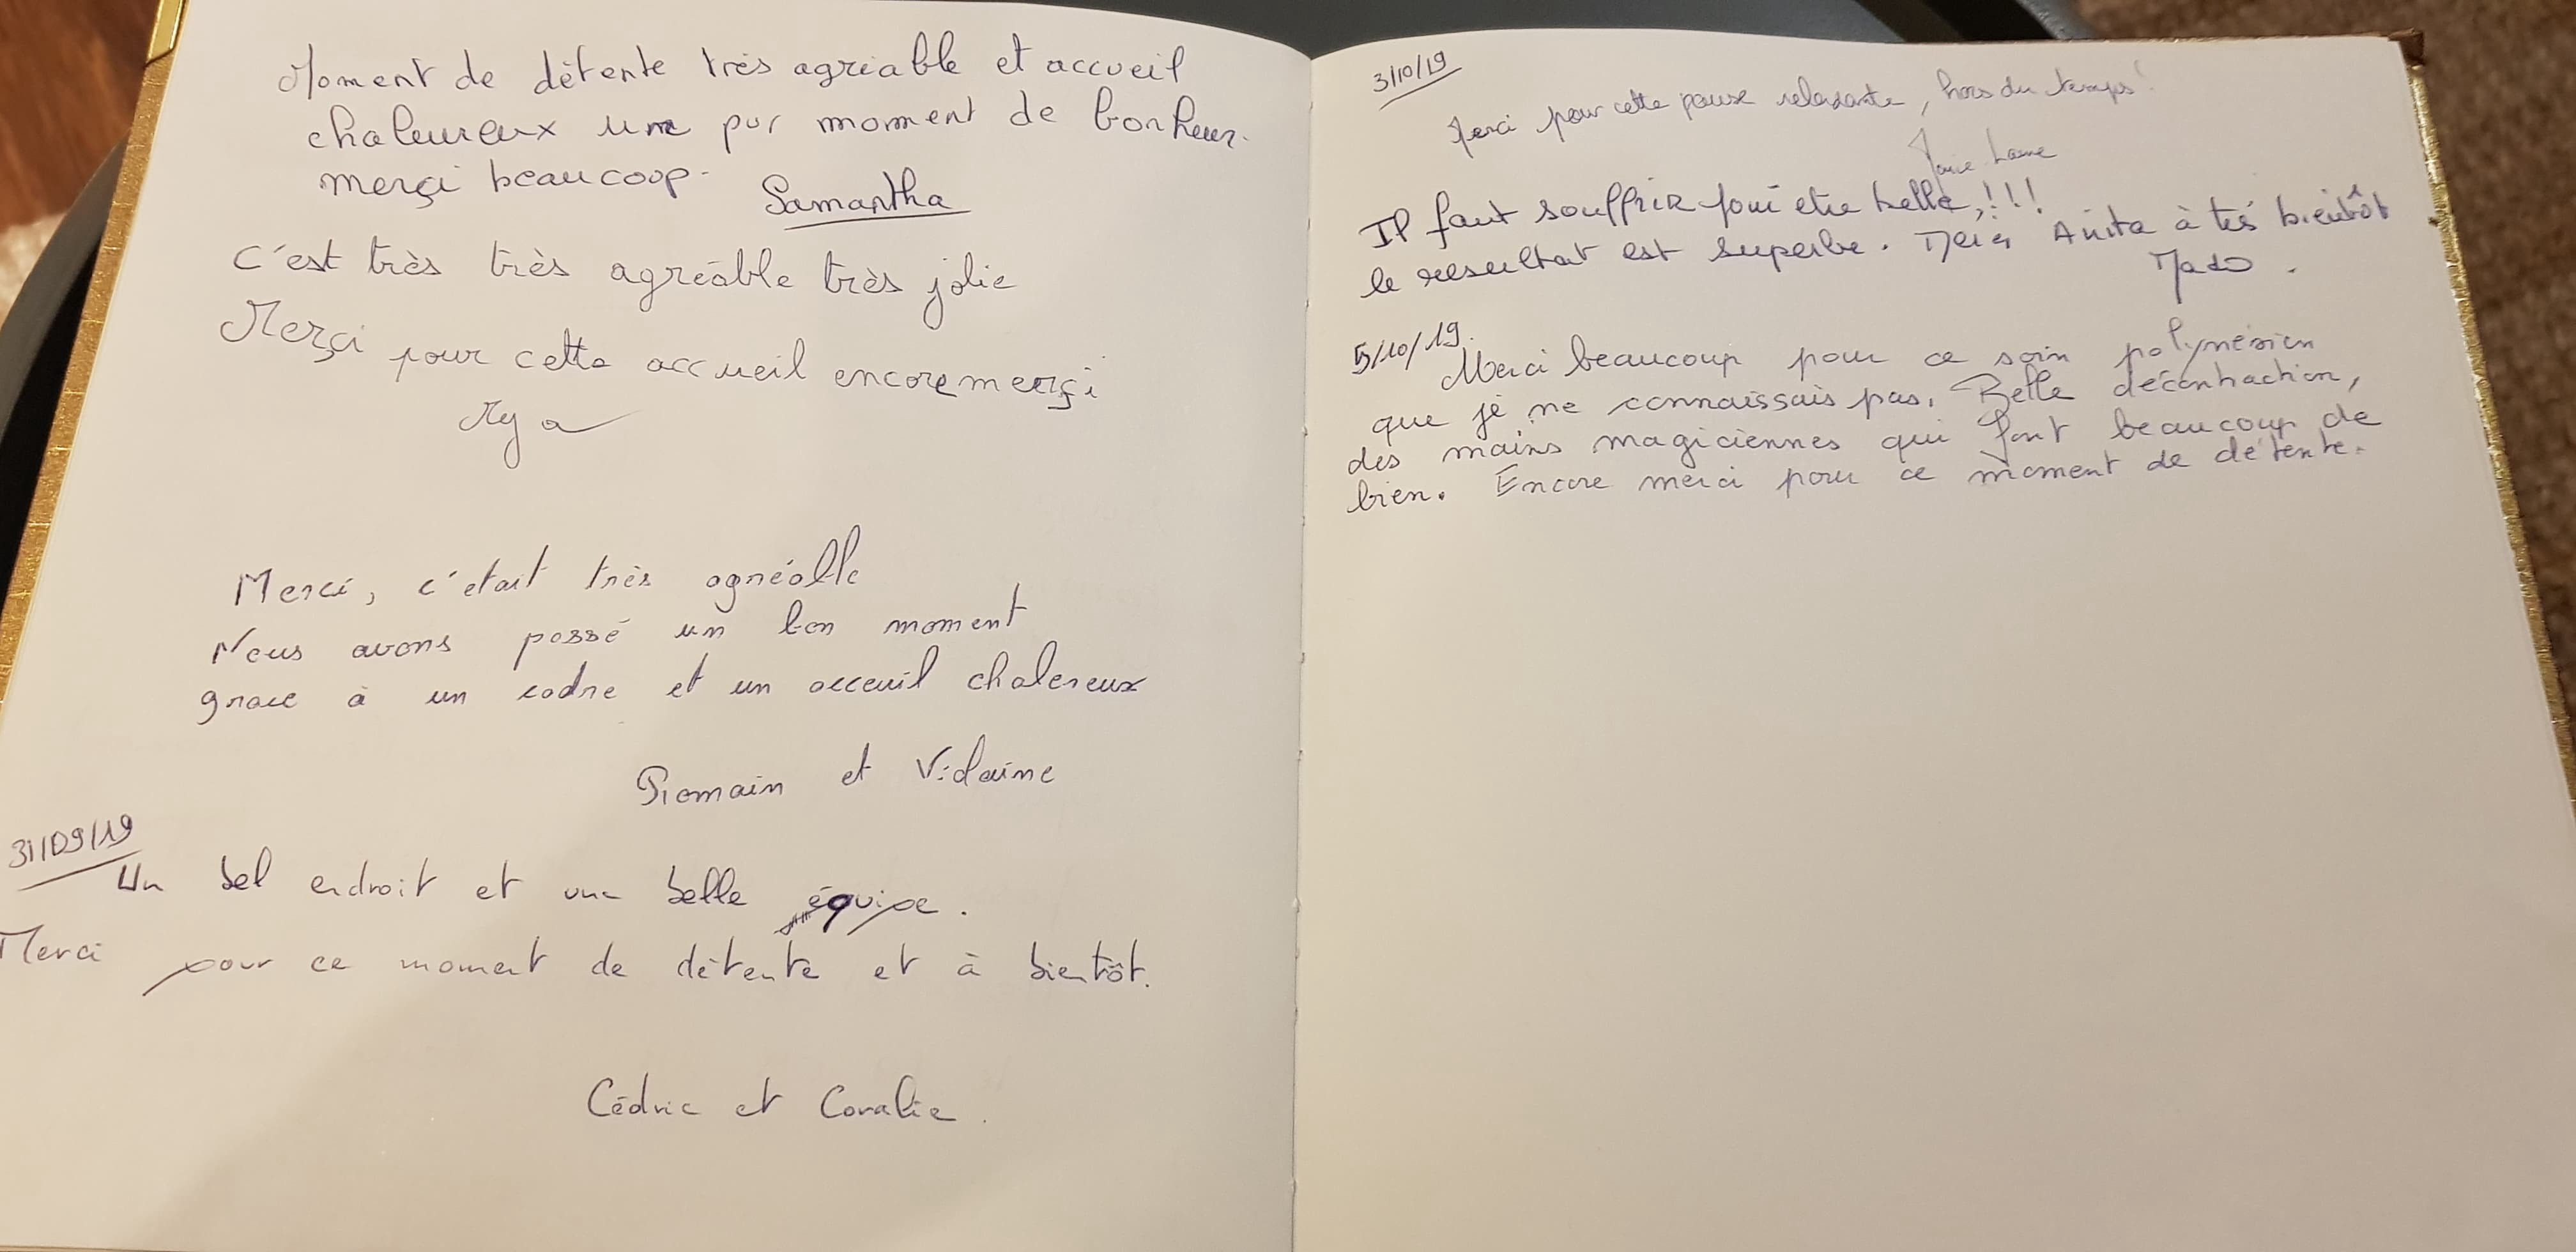 Moment de détente très agréable et accueil
chaleureux un pur moment de bonheur.
merçi beaucoup.
Samantha
C'est très très agréable très jolie
Merçi pour cette accueil encore merçi
Merci, c'etait très agréable
Nous avons passé un bon moment
grace à un cadre et un acceuil chalereux
Romain et
31/09/19
Un bel endroit et une belle équipe.
Merci pour ce moment de détente et à bientôt.
Cédric et Coralie.
3/10/19
Merci pour cette pause relaxante, hors du temps!
Il faut souffrir pour etre belle,!!!
le resultat est superbe. Merci Anita à très bientôt
Mado.
5/10/19.
Merci beaucoup pour ce soin polynésien
que je ne connaissais pas. Belle décontraction,
des mains magiciennes qui font beaucoup de
bien. Encore merci pour ce moment de détente.